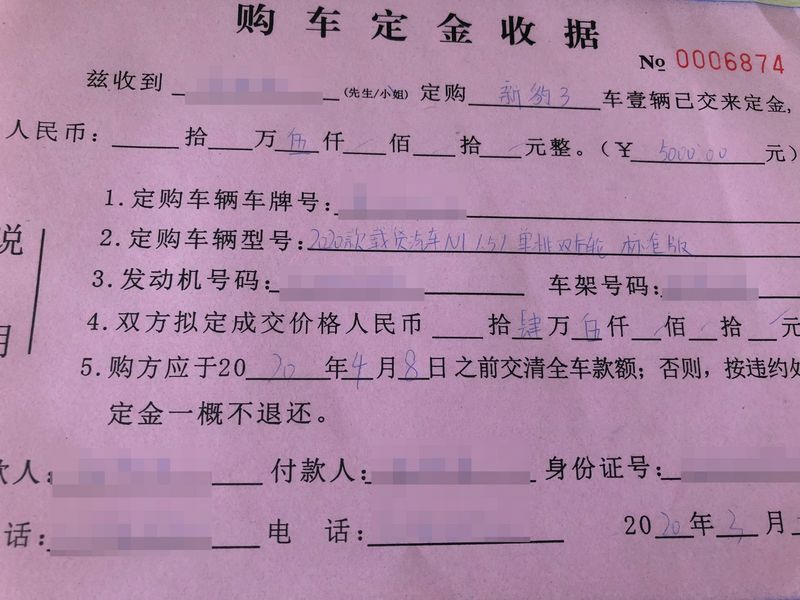 购车定金收据
№ 0006874
兹收到 (先生/小姐) 定购 新豹3 车壹辆已交来定金,
人民币: 拾 万 伍 仟 佰 拾 元整。(¥ 5000.00 元)
1.定购车辆车牌号:
2.定购车辆型号: 2020款载货汽车N1 1.5L 单排双后轮 标准版
3.发动机号码: 车架号码:
4.双方拟定成交价格人民币 拾 肆 万 伍 仟 佰 拾 元
5.购方应于2020年4月8日之前交清全车款额;否则,按违约处
定金一概不退还。
说
明
款人: 付款人: 身份证号:
话: 电 话: 2020年3月